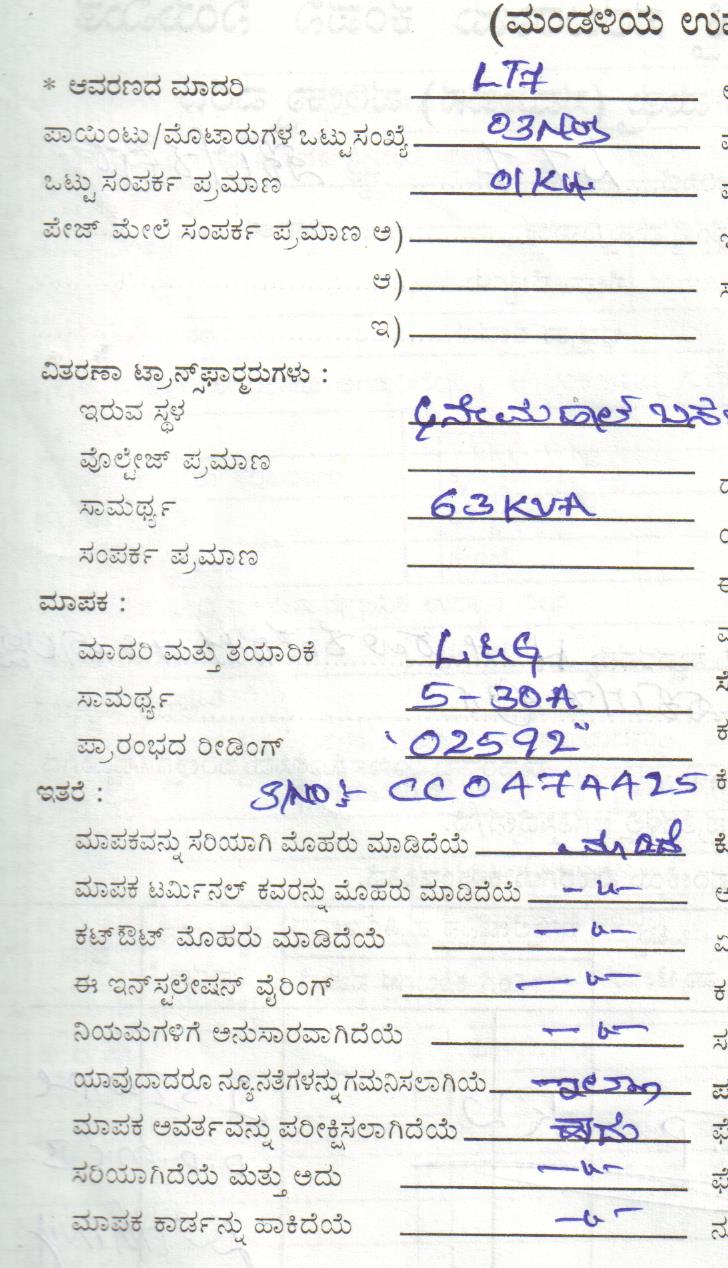 (ಮಂಡಳಿಯ
* ಆವರಣದ ಮಾದರಿ LT7
ಪಾಯಿಂಟು/ಮೊಟಾರುಗಳ ಒಟ್ಟು ಸಂಖ್ಯೆ 03Nos
ಒಟ್ಟು ಸಂಪರ್ಕ ಪ್ರಮಾಣ 01KW
ಪೇಜ್ ಮೇಲೆ ಸಂಪರ್ಕ ಪ್ರಮಾಣ ಅ)
ಆ)
ಇ)
ವಿತರಣಾ ಟ್ರಾನ್ಸ್‌ಫಾರ್ಮರುಗಳು :
ಇರುವ ಸ್ಥಳ
ವೊಲ್ಟೇಜ್ ಪ್ರಮಾಣ
ಸಾಮರ್ಥ್ಯ 63KVA
ಸಂಪರ್ಕ ಪ್ರಮಾಣ
ಮಾಪಕ :
ಮಾದರಿ ಮತ್ತು ತಯಾರಿಕೆ L&G
ಸಾಮರ್ಥ್ಯ 5-30A
ಪ್ರಾರಂಭದ ರೀಡಿಂಗ್ "02592"
ಇತರೆ : S/NO:- CC0474425
ಮಾಪಕವನ್ನು ಸರಿಯಾಗಿ ಮೊಹರು ಮಾಡಿದೆಯೆ
ಮಾಪಕ ಟರ್ಮಿನಲ್ ಕವರನ್ನು ಮೊಹರು ಮಾಡಿದೆಯೆ —u—
ಕಟ್‌ಔಟ್ ಮೊಹರು ಮಾಡಿದೆಯೆ —u—
ಈ ಇನ್‌ಸ್ಟಲೇಷನ್ ವೈರಿಂಗ್ —u—
ನಿಯಮಗಳಿಗೆ ಅನುಸಾರವಾಗಿದೆಯೆ —u—
ಯಾವುದಾದರೂ ನ್ಯೂನತೆಗಳನ್ನು ಗಮನಿಸಲಾಗಿಯೆ ಇಲ್ಲಾ
ಮಾಪಕ ಆವರ್ತವನ್ನು ಪರೀಕ್ಷಿಸಲಾಗಿದೆಯೆ ಹೌದು
ಸರಿಯಾಗಿದೆಯೆ ಮತ್ತು ಅದು —u—
ಮಾಪಕ ಕಾರ್ಡನ್ನು ಹಾಕಿದೆಯೆ —u—